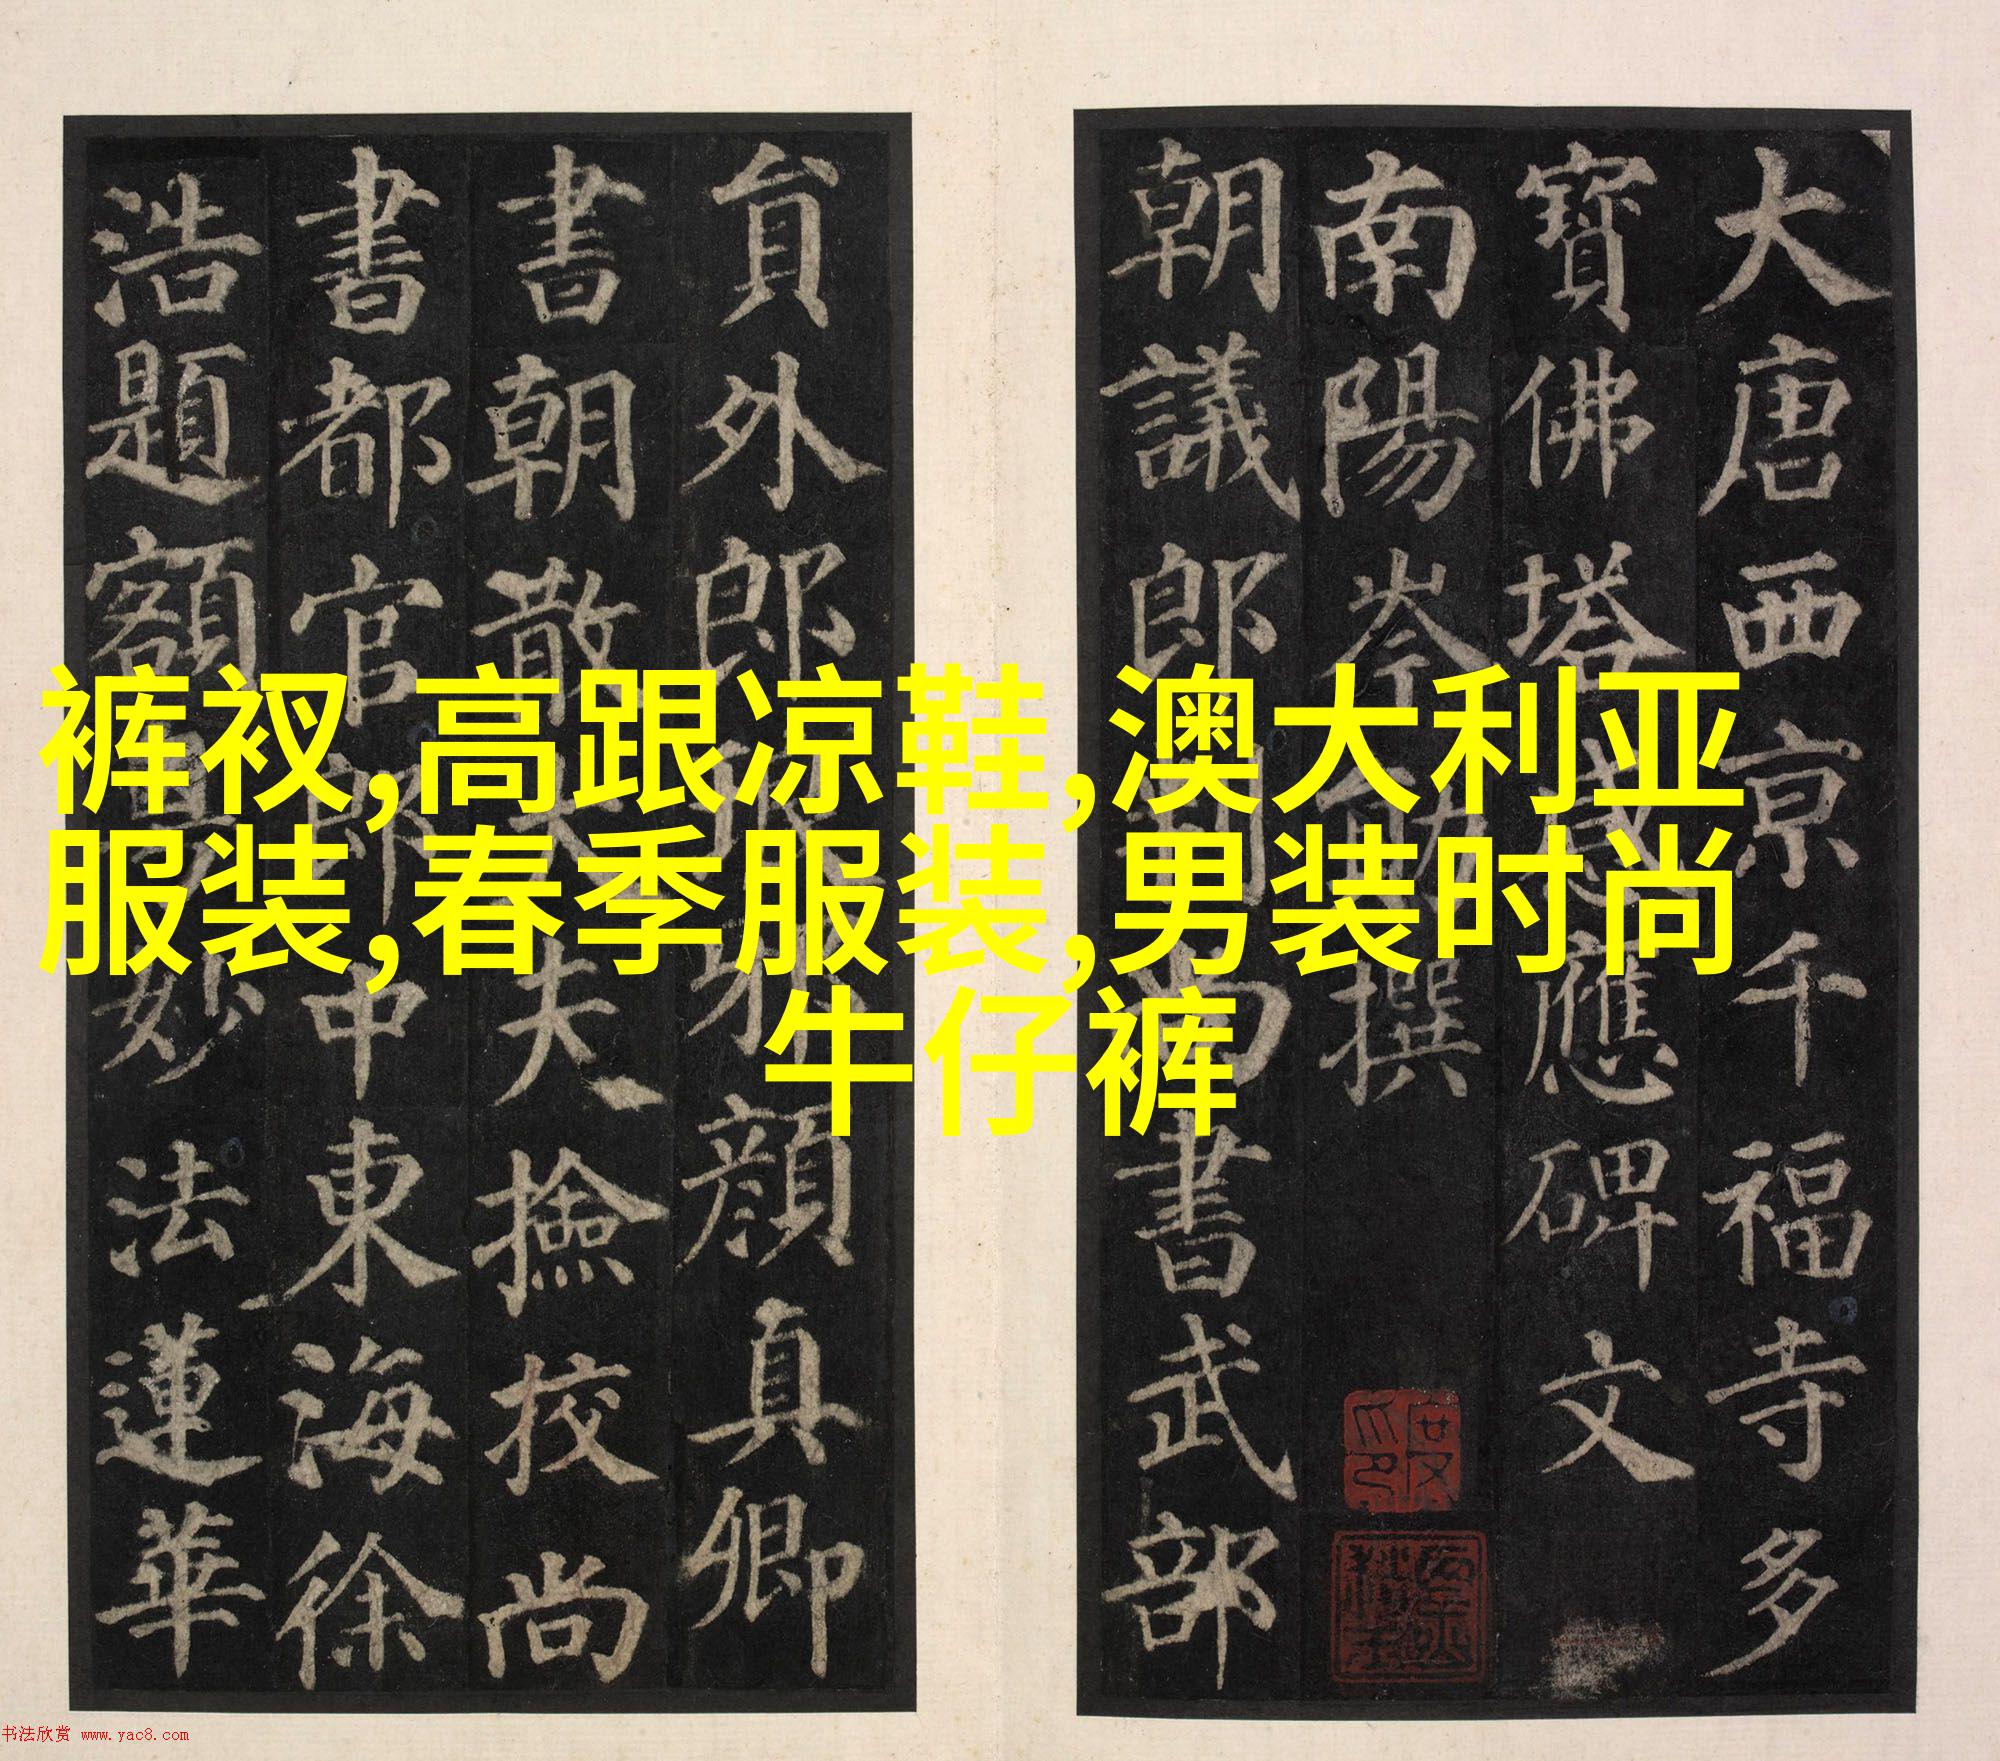 裤衩,高跟凉鞋,澳大利亚
服装,春季服装,男装时尚
牛仔裤
大唐西京千福寺多
寶佛塔感應碑文
南陽岑勛撰
朝議郎判尚書武部
貟外郎琅邪顏真卿
書朝散大夫撿校尚
書都官郎中東海徐
浩題額妙法蓮華
书法欣赏 www.yac8.com